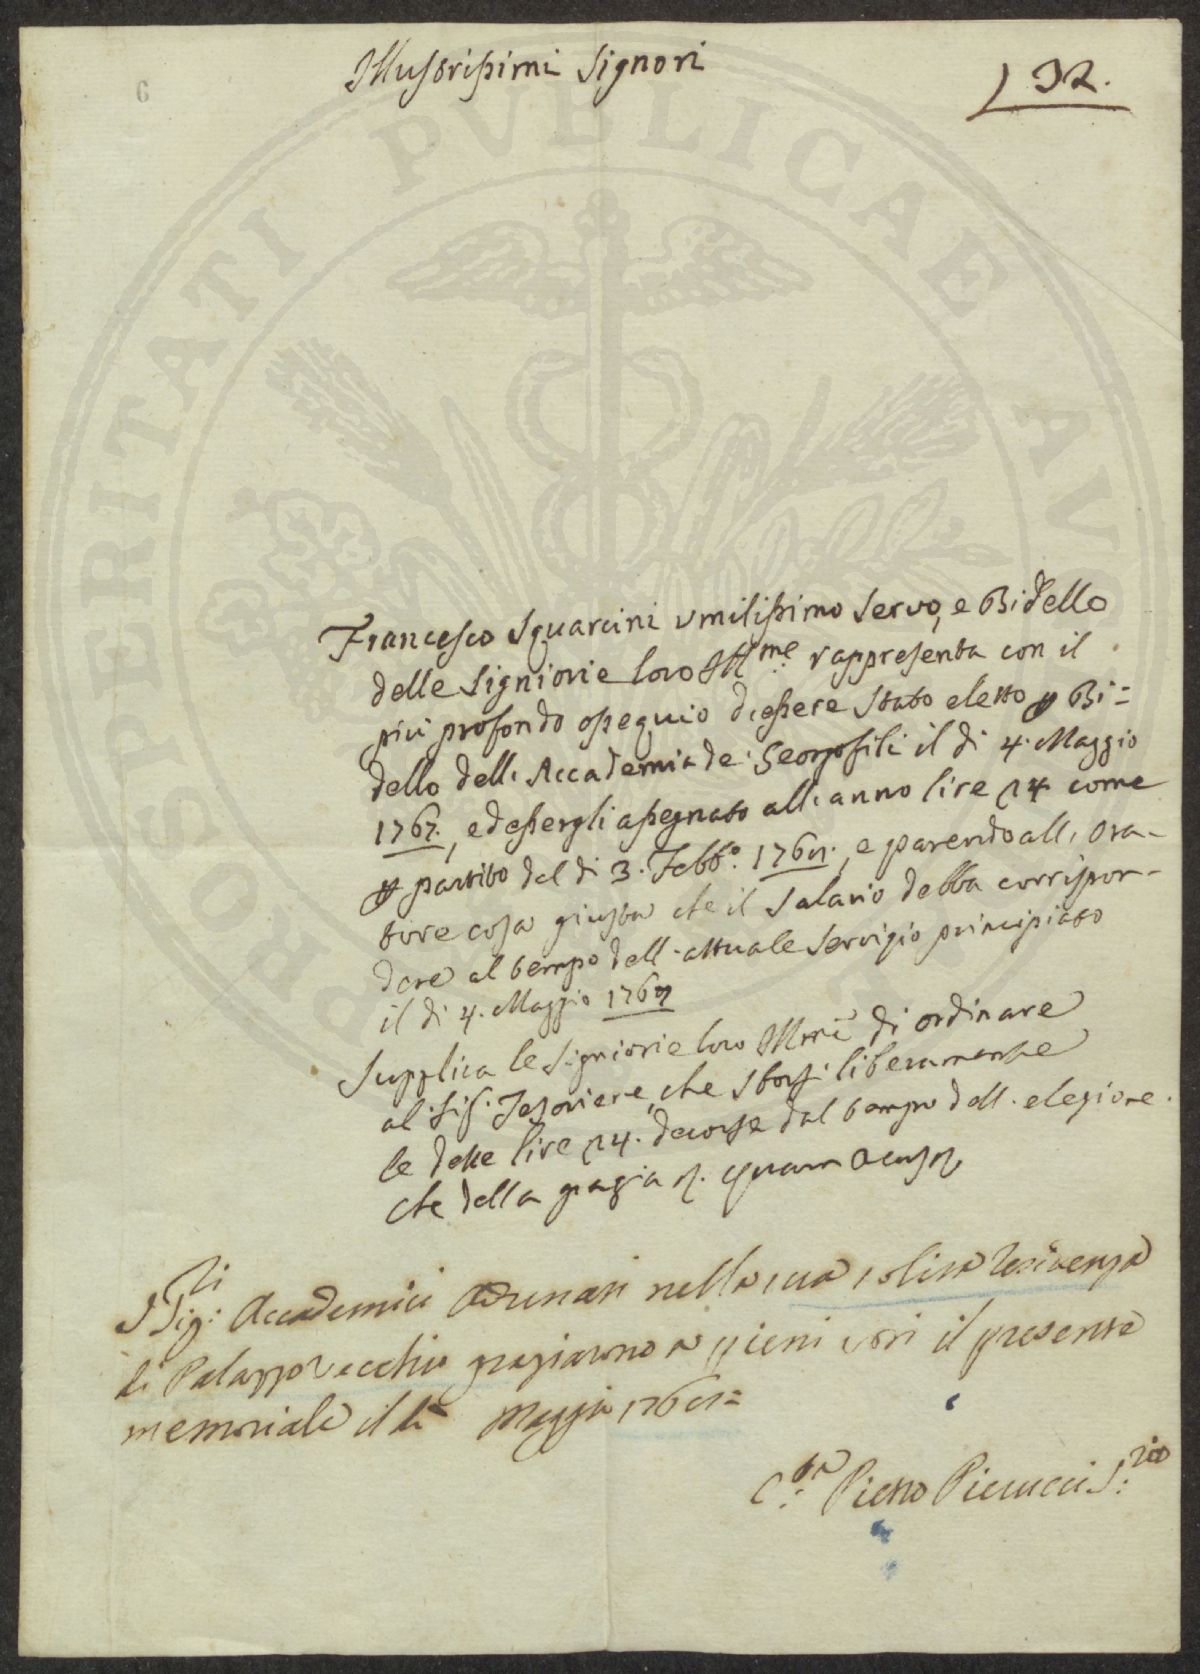 Illustrissimi Signori
32.
6
PROSPERITATI PVBLICAE AVGENDAE
Francesco Squarcini vmilissimo servo, e Bidello
delle Signiorie loro Ill:me rappresenta con il
più profondo ossequio d'essere stato eletto p Bi=
dello dell'Accademia de' Georgofili il dì 4. Maggio
1767., ed essergli assegnato all'anno lire 24 come
p partito del dì 3. Febb:o, e parendo all'Ora-
tore cosa giusta che il Salario debba corrispon-
dere al tempo dell'attuale servigio principiato
il dì 4. Maggio
Supplica le Signiorie loro Ill:me di ordinare
al Sig. Tesoriere, che sborsi liberamente
le dette lire 24. decorse dal tempo dell'elezione.
che della grazia
Sig:ri Accademici Adunati nella sua solita Residenza
di Palazzo Vecchio graziarono a pieni voti il presente
memoriale il dì Maggio
Pietro Pierucci S:rio